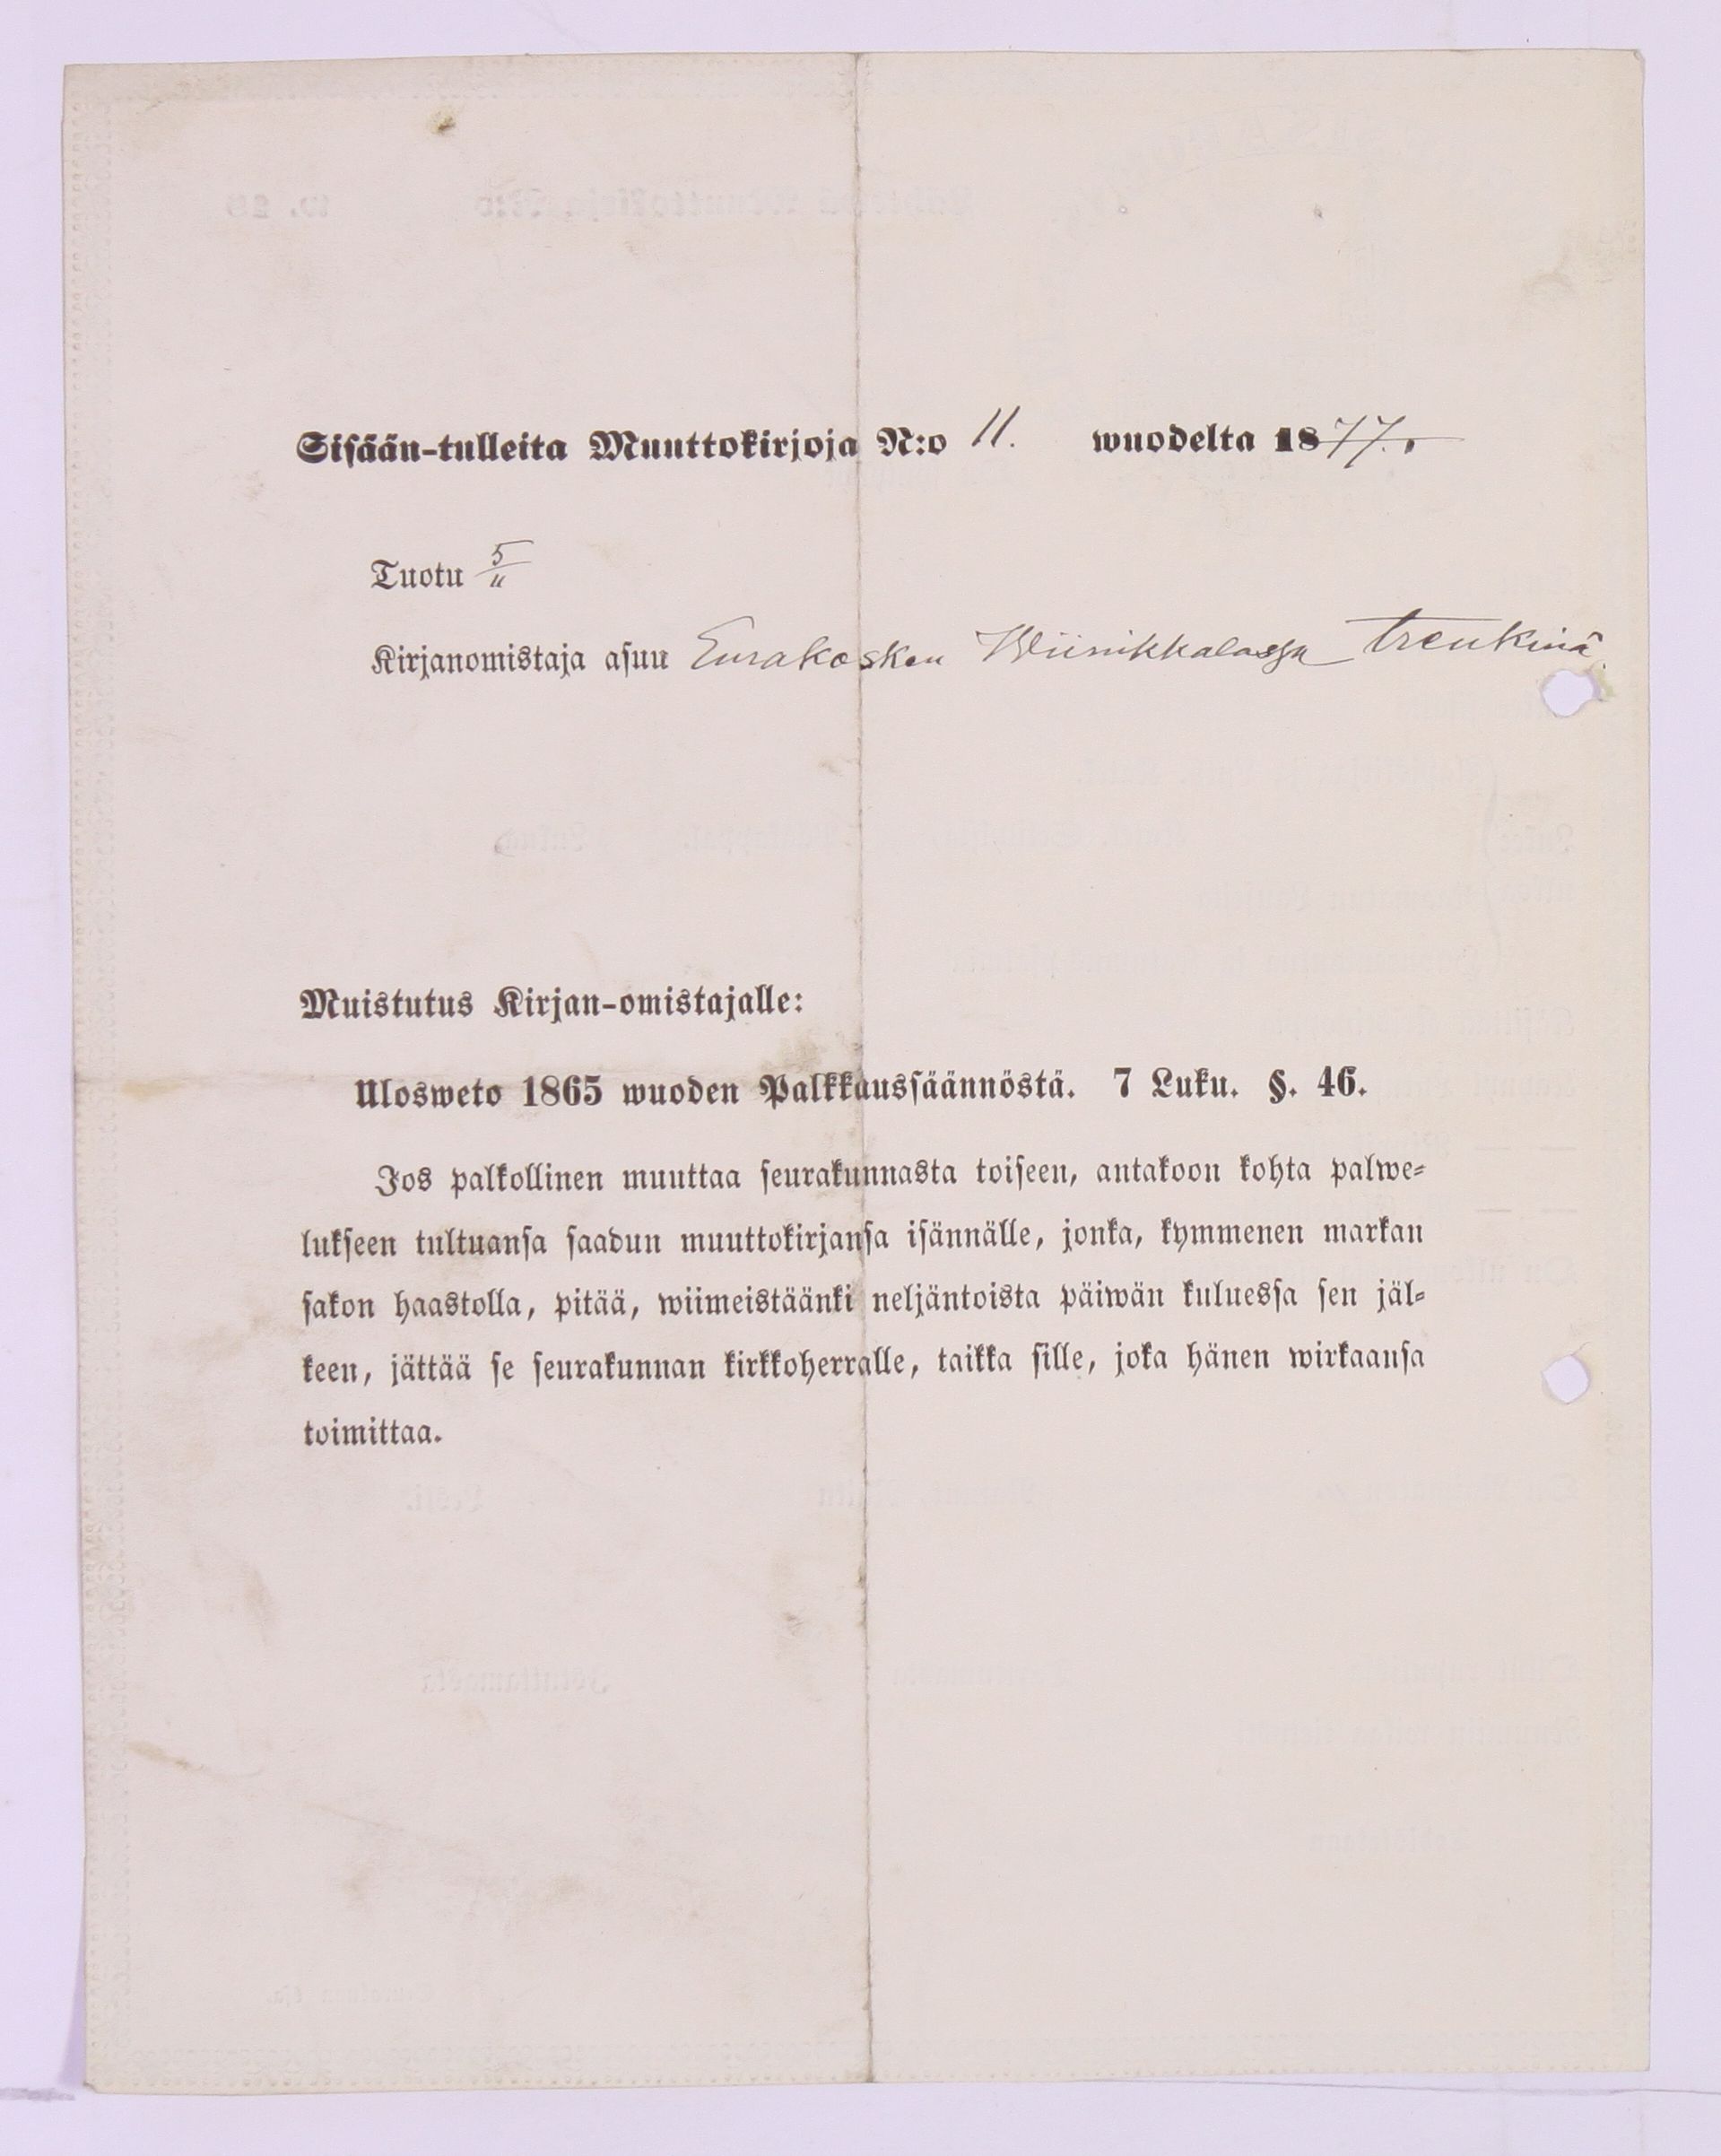 Sisään-tulleita Muuttokirjoja N:o 11. wuodelta 1877.
Tuotu 5/11
Kirjanomistaja asuu Eurakosken Wiinikkalassa trenkinä
Muistutus Kirjan-omistajalle:
Ulosweto 1865 wuoden Palkkaussäännöstä. 7 Luku. §. 46.
Jos palkollinen muuttaa seurakunnasta toiseen, antakoon kohta palwe-
lukseen tultuansa saadun muuttokirjansa isännälle, jonka, kymmenen markan
sakon haastolla, pitää, wiimeistäänki neljäntoista päiwän kuluessa sen jäl-
keen, jättää se seurakunnan kirkkoherralle, taikka sille, joka hänen wirkaansa
toimittaa.